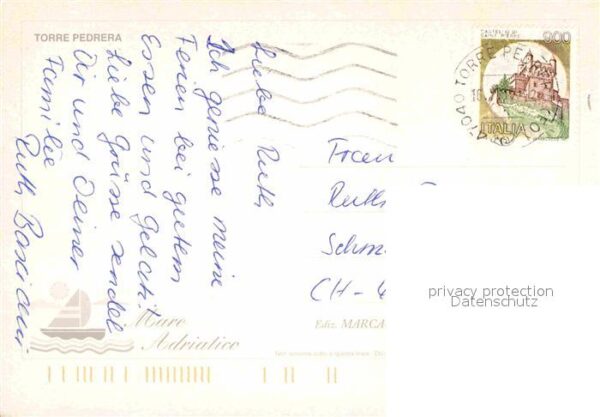 TORRE PEDRERA
Liebe Ruth
Ich geniesse meine
Ferien bei gutem
Essen und Gelati!
Liebe Grüsse sendet
Dir und Deiner
Familie
Ruth
900
ITALIA
47040 TORRE PE
Frau
Ruth
Schm
CH-4
privacy protection
Datenschutz
Mare
Adriatico
Ediz. MARCA